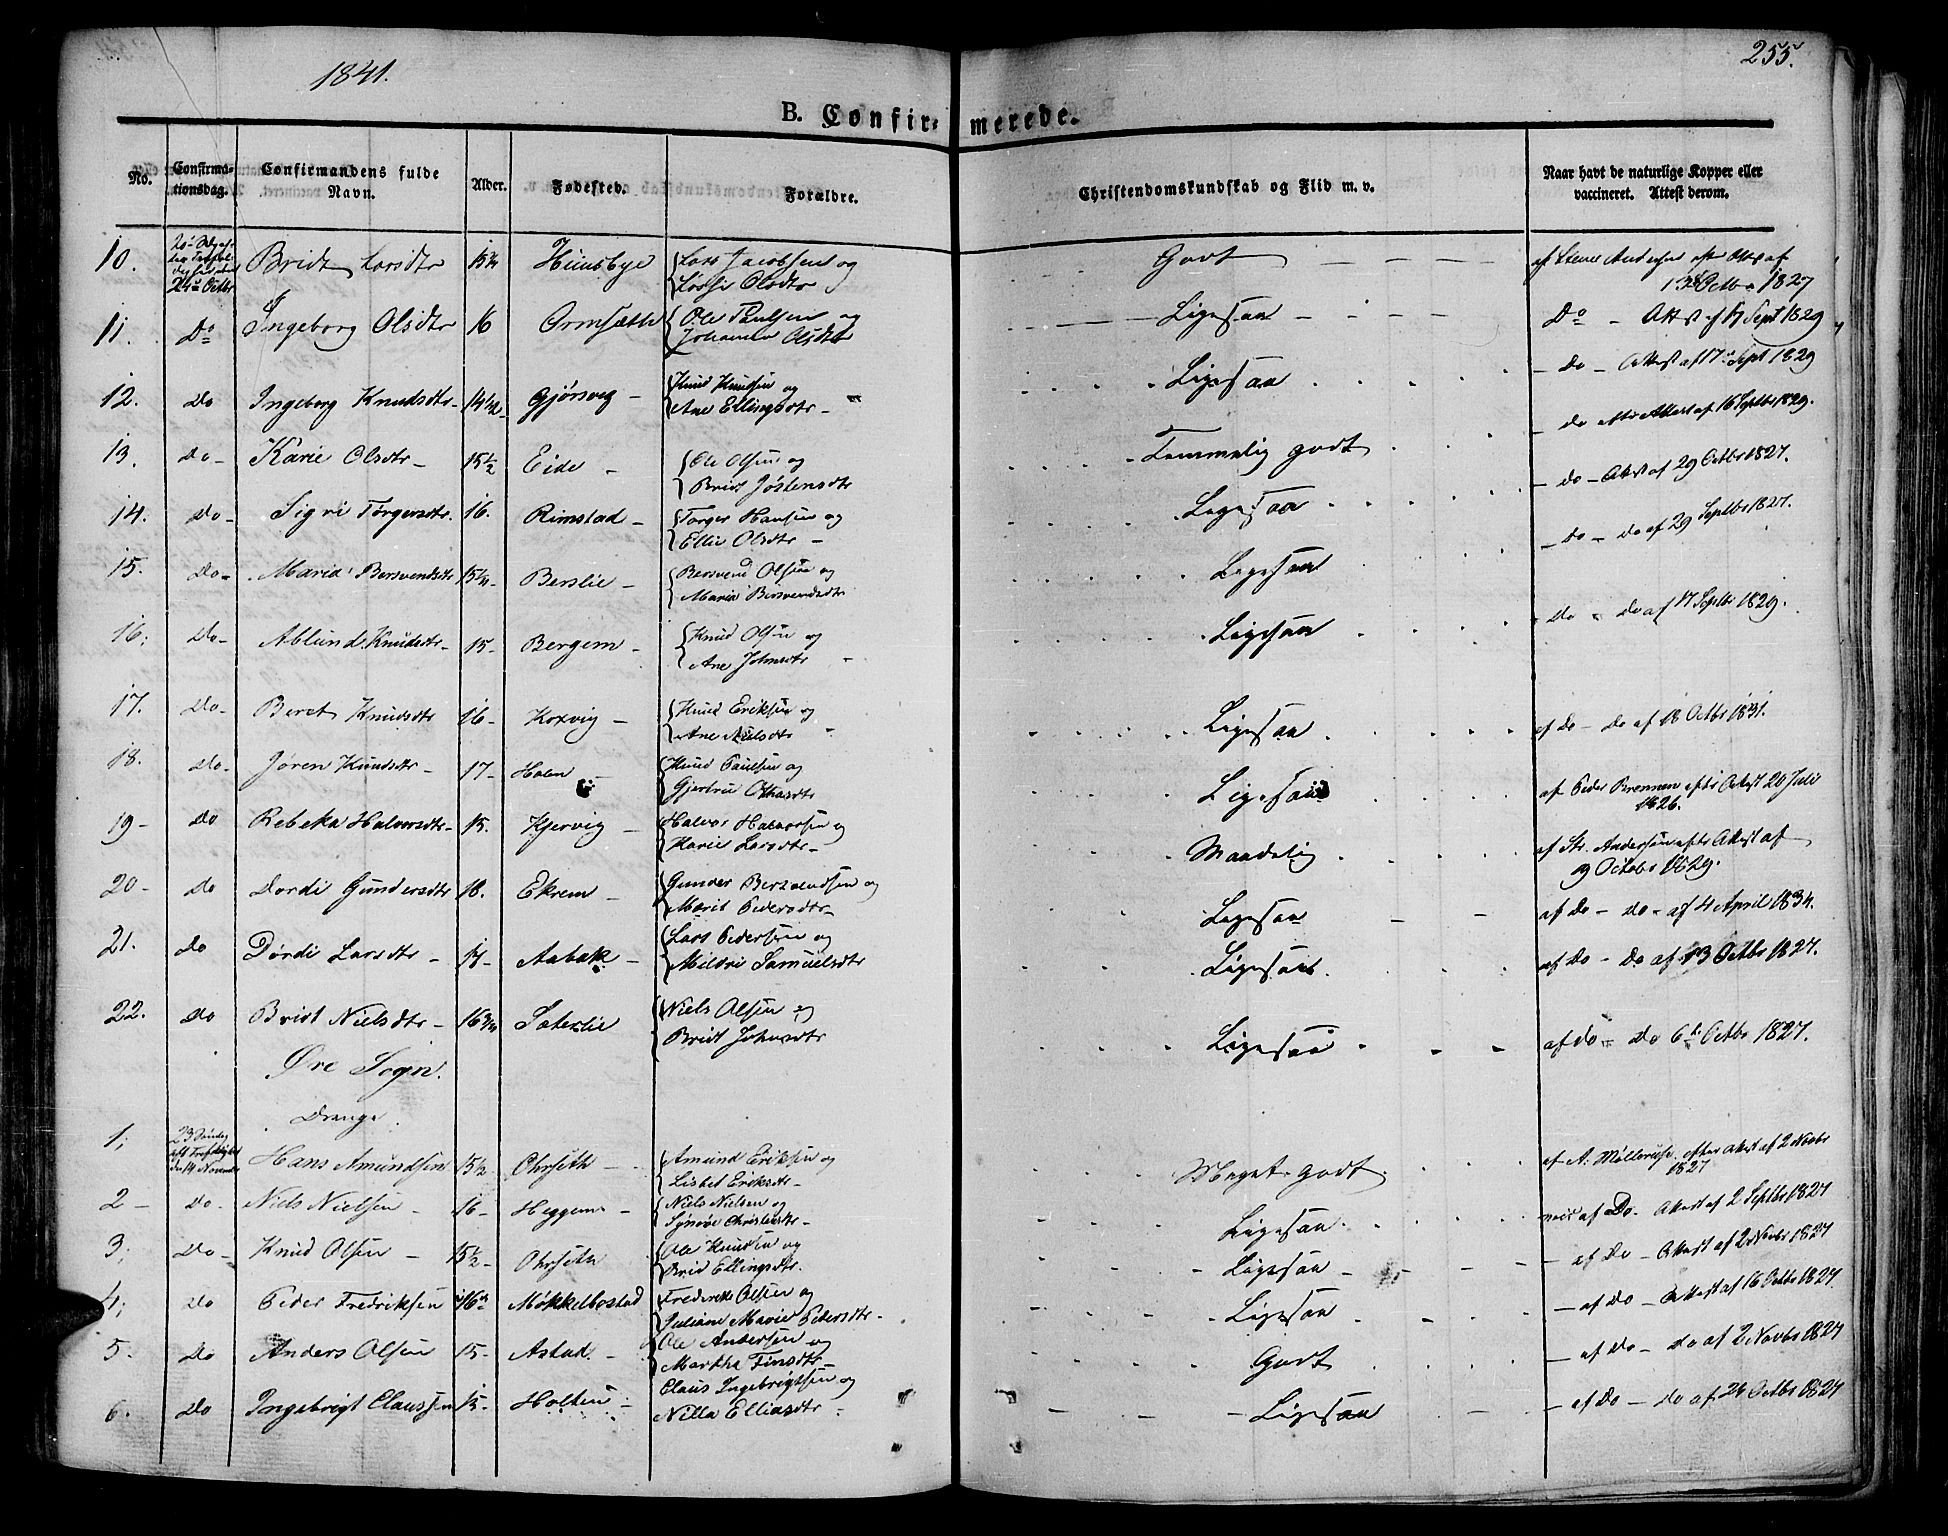 1841.
255.
B. Confirmerede.
No. Confirmationsdag. Confirmandens fulde Navn. Alder. Fødested. Forældre. Christendomskundskab og Flid m. v. Naar havt de naturlige Kopper eller vaccineret. Attest derom.
10. 24 Octbr Bridt Larsdtr 15 1/4 Hunsbye Lars Jacobsen og Olsdtr Godt af Andersen Attest af 13 Octbr 1827
11. Do Ingeborg Olsdtr 16 Ormsæth Ole Paulsen og Johanna Olsdtr Ligesaa Do - Attest af 17 Sept 1829
12. Do Ingeborg Knudsdtr 14 1/2 Gjørsvig Knud Knudsen og Ane Ellingsdtr Ligesaa - Do - Attest af 17 Sept 1829
13. Do Karie Olsdtr 15 1/2 Eide Ole Olsen og Bridt Jøstensdtr Temmelig godt - do Attest af 16 Septbr 1829.
14. Do Sigri Torgersdtr. 16. Rimstad Torger Hansen og Ellie Olsdtr Ligesaa - do - Attest af 29 Octbr 1827.
15. Do Maria Bersvendsdtr 15 1/4 Berslie Bersvend Olsen og Maria Bersvendsdtr Ligesaa - Do - do af 29 Septbr 1827.
16. Do Ablund Knudsdtr 15 Bergem Knud Olsen og Ane Johnsdtr Ligesaa - Do - do af 17 Septbr 1829.
17. Do Beret Knudsdtr 16 Korsvig Knud Eriksen og Ane Nielsdtr Ligesaa af Do - Do af 18 Octbr 1831.
18. Do Jøren Knudsdtr 17 Holen Knud Paulsen og Gjertru Ligesaa af Peder Brennen efter Attest 20 Juli 1826.
19 Do Rebeka Halvorsdtr 15. Kjervig Halvor Halvorsen og Karie Larsdtr Maadelig af Str. Andersen efter Attest af 9 Octobr 1829.
20 Do Dordi Gundersdtr 18. Ekrem Gunder Bersvendsen og Marit Pedersdtr Ligesaa af Do - do - af 4 April 1834.
21. Do Dordi Larsdtr 17 Aabak Lars Pedersen og Mildri Samuelsdtr Ligesaa af Do - Do af 13 Octbr 1827.
22. Do Bridt Nielsdtr 16 3/4 Sæterlie Niels Olsen og Bridt Johnsdtr Ligesaa af do - Do 6 Octbr 1827.
Øre Sogn.
Drenge
1; 23 Søndag den 14 November Hans Amundsen 15 1/2 Ohrseth Amund Eriksen og Lisbet Eriksdtr Meget godt af A. efter Attest af 2 Novbr 1827
2 Do Niels Nielsen 16 Heggem Niels Nielsen og Synøve Christensdtr Ligesaa af Do. Attest af 2 Septbr 1827
3; Do Knud Olsen 15 1/2 Ohrseth Ole Knudsen og Brid Ellingsdtr. Ligesaa - af Do - Attest af 2 Novbr 1827
4; Do Peder Fredriksen 16 Møkkelbostad Frederik Olsen og Juliane Marie Pedersdtr Ligesaa - af Do - Attest af 16 Octbr 1827
5. Do Anders Olsen 15 Astad Ole Andersen og Martha Finsdtr Godt - af Do - do af 2 Novbr 1827
6. Do Ingebrigt Claussen 15 Holten Claus Ingebrigtsen og Nilla Elliasdtr Ligesaa - af Do - Do af 24 Octbr 1827